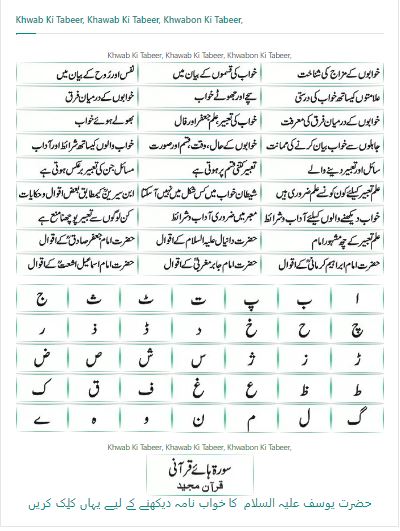 Khwab Ki Tabeer, Khawab Ki Tabeer, Khwabon Ki Tabeer,
Khwab Ki Tabeer, Khawab Ki Tabeer, Khwabon Ki Tabeer,
خوابوں کے مزاج کی شناخت خواب کی قسموں کے بیان میں نفس اور رُوح کے بیان میں
علامتوں کیساتھ خواب کی درستی سچے اور جھوٹے خواب خوابوں کے درمیان فرق
خوابوں کے درمیان فرق کی معرفت خواب کی تعبیر علم جعفر اور فال بھولے ہوئے خواب
جاہلوں سے خواب بیان کرنے کی ممانت خوابوں کے حال، وقت، قسم اور صورت خواب والوں کیساتھ شرائط اور آداب
سائل اور تعبیر دینے والے تعبیر کتنی قسم پر ہوتی ہے مسائل جن کی تعبیر برعکس ہوتی ہے
علم تعبیر کیلئے کون کونسے علم ضروری ہیں شیطان خواب میں کس شکل میں نہیں آسکتا ابن سیرینؒ کیمطابق بعض اقوال و حکایات
خواب دیکھنے والوں کیلئے آداب و شرائط معبر میں ضروری آداب و شرائط کن لوگوں سے تعبیر پوچھنا منع ہے
علم تعبیر کے چھ مشہور امام حضرت دانیال علیہ السلام کے اقوال حضرت امام جعفر صادقؒ کے اقوال
حضرت امام ابراہیم کرمانیؒ کے اقوال حضرت امام جابر مغربیؒ کے اقوال حضرت امام اسماعیل اشعثؒ کے اقوال
ا ب پ ت ٹ ث ج
چ ح خ د ڈ ذ ر
ڑ ز ژ س ش ص ض
ط ظ ع غ ف ق ک
گ ل م ن و ہ ے
Khwab Ki Tabeer, Khawab Ki Tabeer, Khwabon Ki Tabeer,
سورۃ ہائے قرآنی
قرآن مجید
حضرت یوسف علیہ السلام کا خواب نامہ دیکھنے کے لیے یہاں کلِک کریں